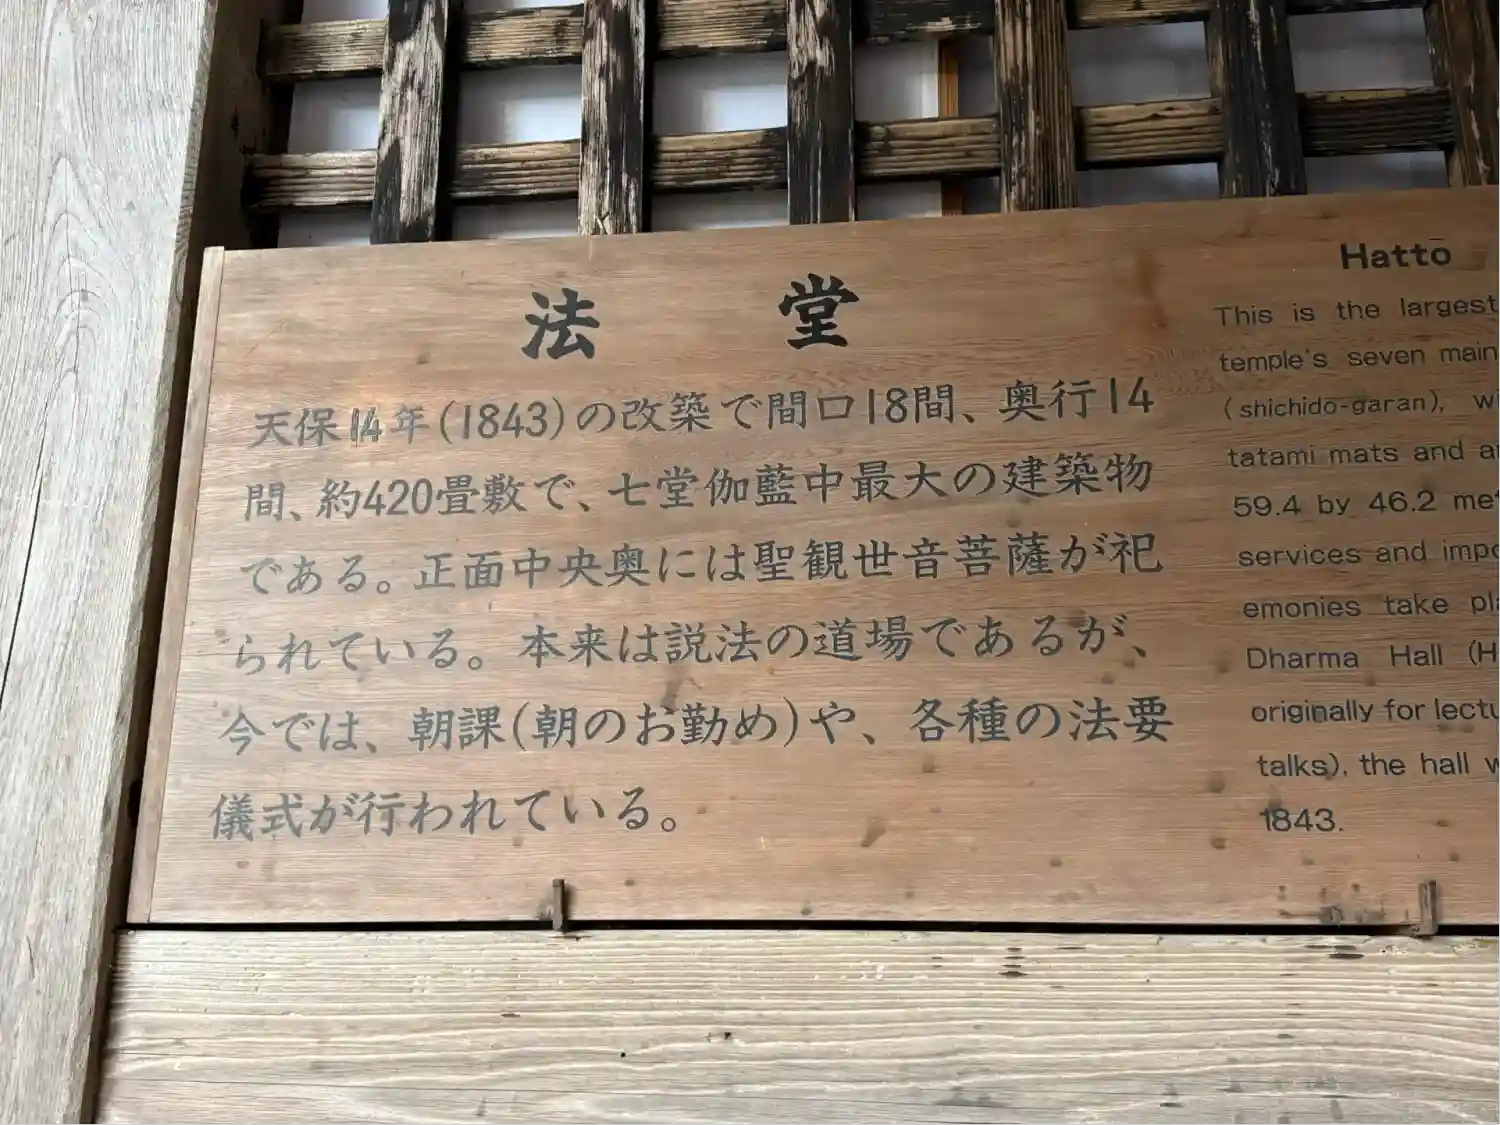 法堂
天保14年(1843)の改築で間口18間、奥行14
間、約420畳敷で、七堂伽藍中最大の建築物
である。正面中央奥には聖観世音菩薩が祀
られている。本来は説法の道場であるが、
今では、朝課(朝のお勤め)や、各種の法要
儀式が行われている。
Hatto
This is the largest
temple's seven main
(shichido-garan),
tatami mats and
59.4 by 46.2
services and
emonies take
Dharma Hall
originally for
talks), the hall
1843.